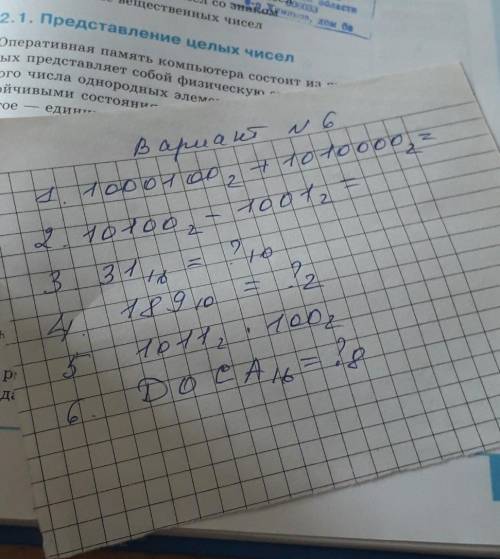 со знаком
вещественных чисел
2.1. Представление целых чисел
Оперативная память компьютера состоит из
представляет собой физическую
числа однородных
состояния
Вариант №6
1. 1000100₂ + 1010000₂ =
2. 10100₂ - 1001₂ =
3 31₁₆ = ?₁₀
4. 189₁₀ = ?₂
5 1011₂ · 100₂
6. D0CA₁₆ = ?₈